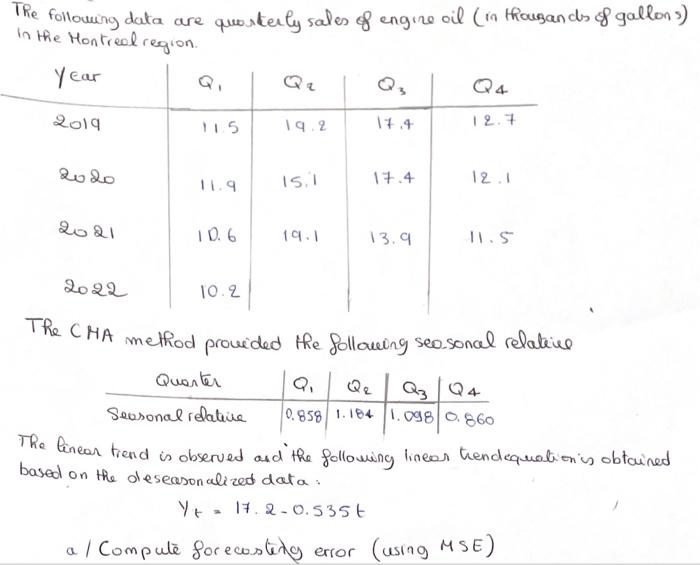 The following data are quarterly sales of engine oil (in thousands of gallons)
in the Montreal region.
Year Q1 Q2 Q3 Q4
2019 11.5 19.2 17.4 12.7
2020 11.9 15.1 17.4 12.1
2021 10.6 19.1 13.9 11.5
2022 10.2
The CMA method provided the following seasonal relative
Quarter Q1 Q2 Q3 Q4
Seasonal relative 0.858 1.184 1.098 0.860
The linear trend is observed and the following linear trend equation is obtained
based on the deseasonalized data:
Yt = 17.2 - 0.535t
a / Compute forecasting error (using MSE)